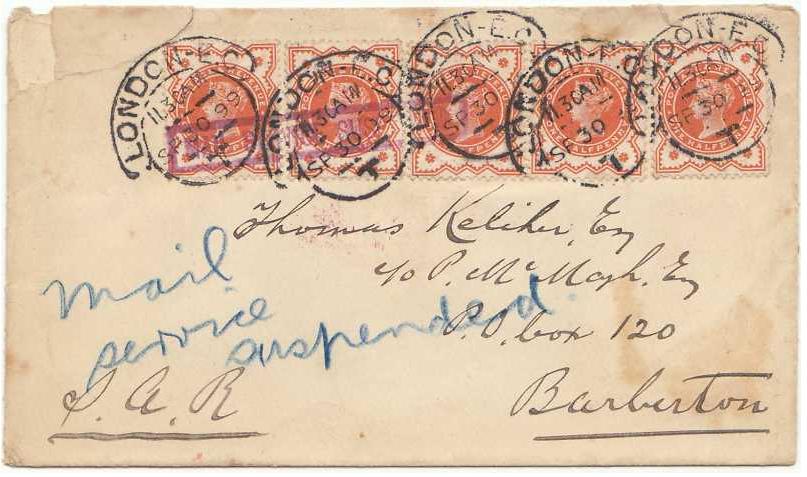 LONDON-E.C LONDON-E.C LONDON-E.C LONDON-E.C LONDON-E.C
11.30AM 11.30AM 11.30AM 11.30AM 11.30AM
SP 30 99 SP 30 99 SP 30 SP 30 SP 30
T T T T
HALFPENNY
Thomas Keliher, Esq
c/o P. McMagh. Esq
P.O. box 120
Barberton
S. A. R
mail
service
suspended.